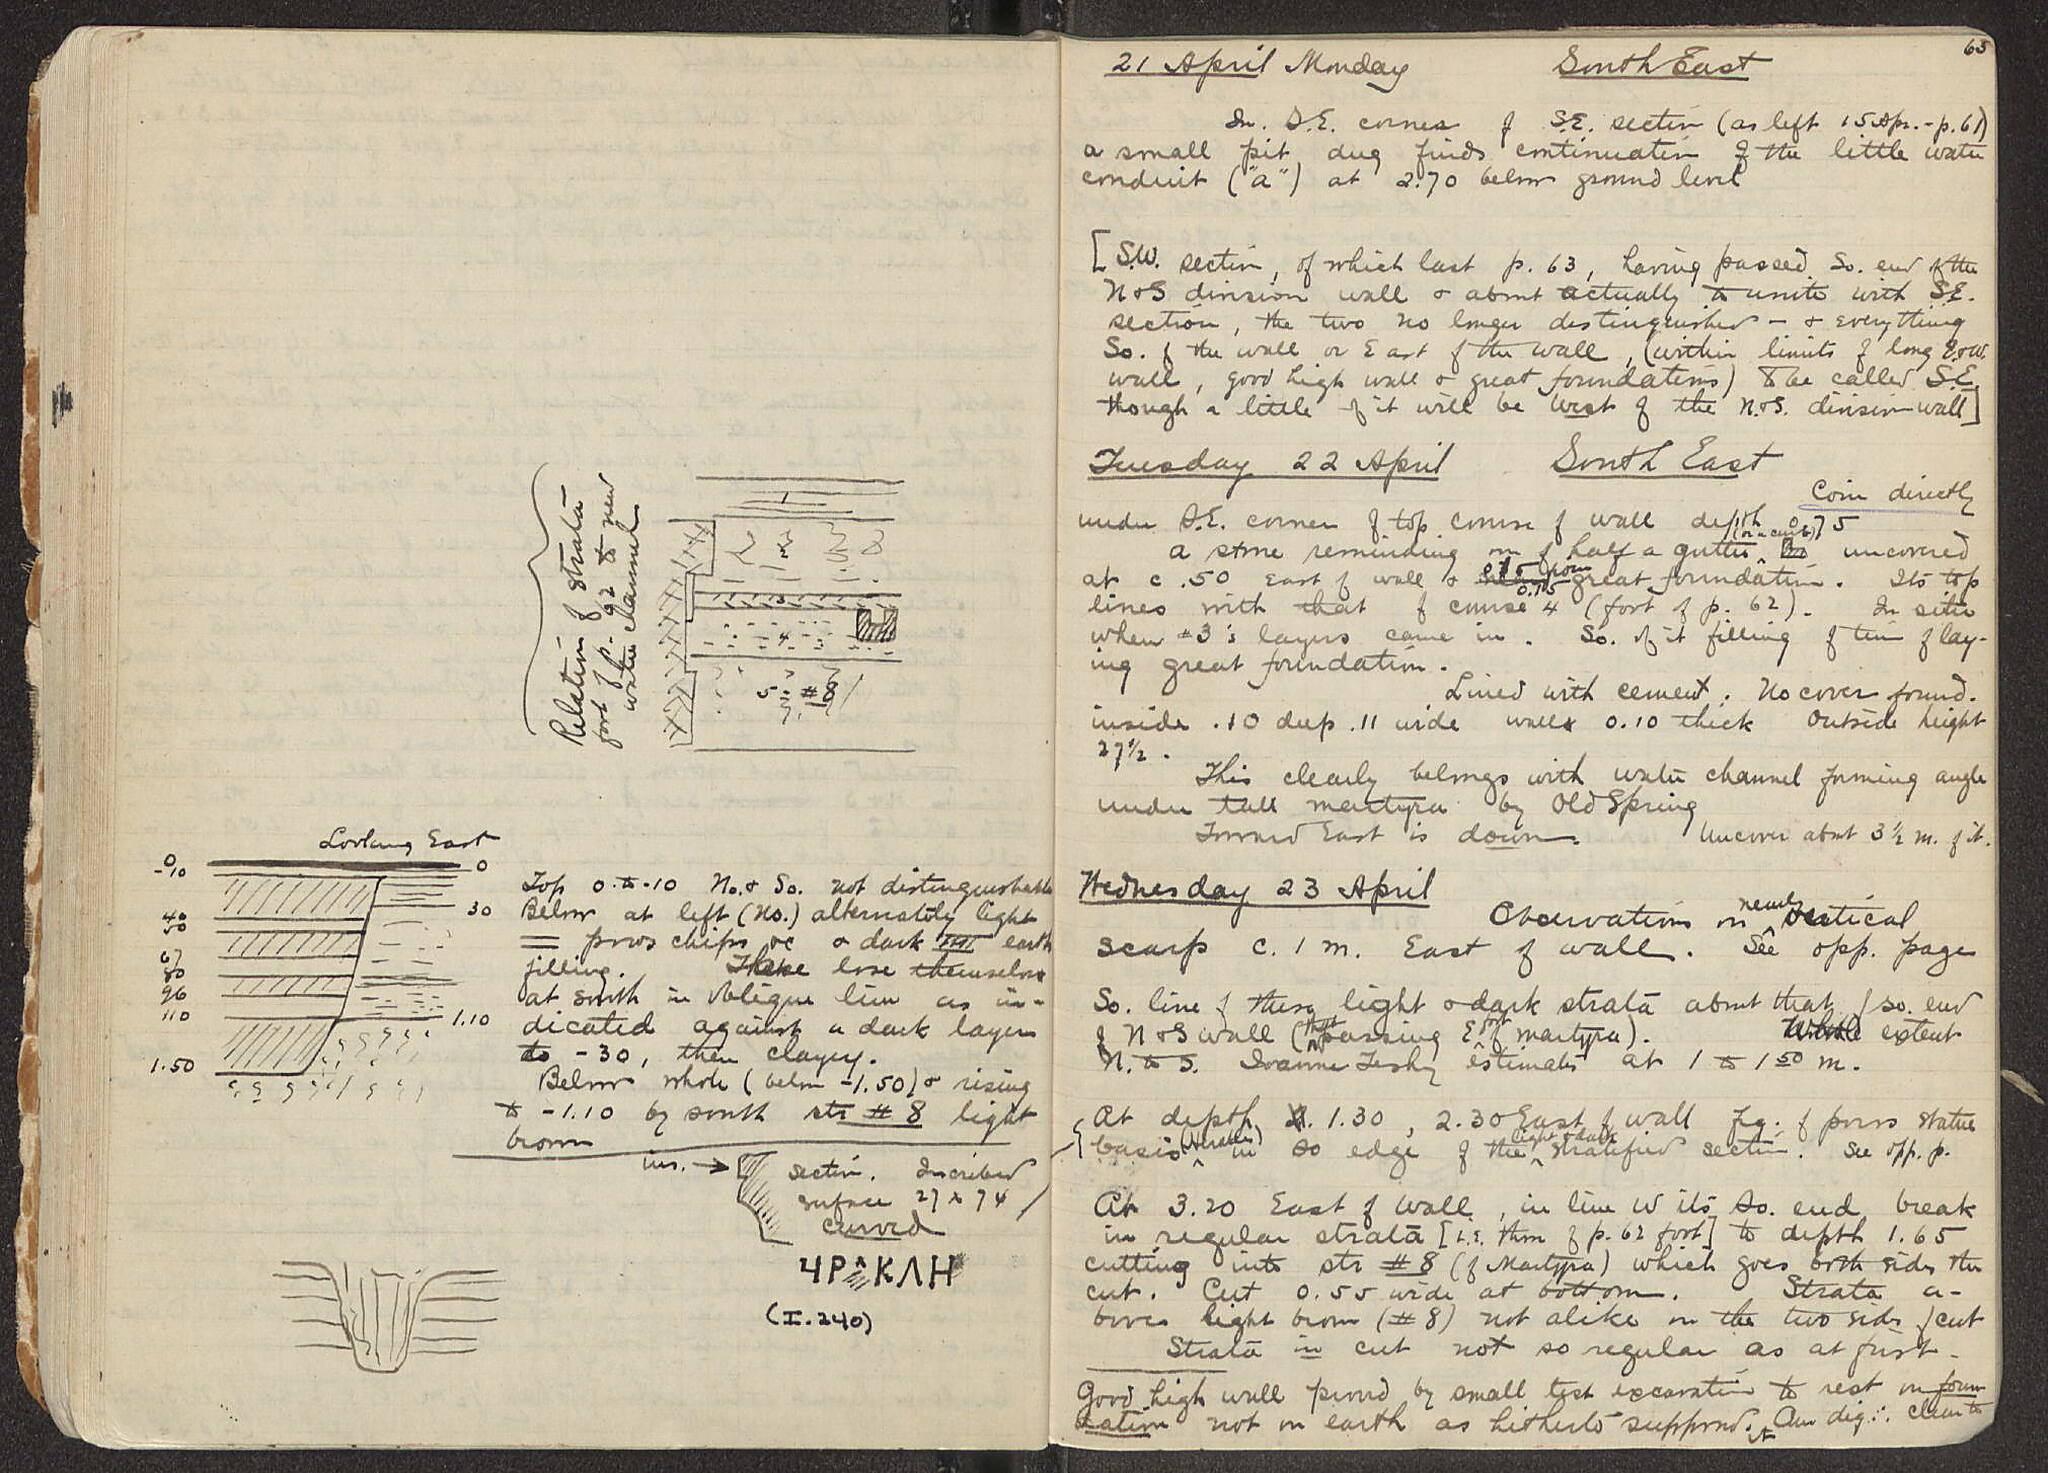 Relation of strata
fort of p. 62 to new
water channel
1
2
3
4 3
5 = #8
Looking East
0
-10
40
50
67
80
96
110
1.50
0
30
1.10
Top 0 to -10 No. & So. not distinguishable
Below at left (No.) alternately light
= poros chips &c & dark earth
filling. These lose themselves
at south in oblique line as in-
dicated against a dark layer
to -30, then clayey.
Below whole (below -1.50) & rising
to -1.10 by south str #8 light
brown
ins. → section. Inscribed
surface 27 x 74
curved
ΗΡΑΚΛΗ
(I.240)
65
21 April Monday South East
In S.E. corner of S.E. section (as left 15 Apr. - p. 61)
a small pit dug finds continuation of the little water
conduit ("a") at 2.70 below ground level
[S.W. section, of which last p. 63, having passed So. end of the
N & S division wall & about actually to unite with S.E.
section, the two no longer distinguished - & everything
So. of the wall or East of the wall, (within limits of long E & W.
wall, good high wall & great foundations) to be called S.E.
though a little of it will be West of the N. & S. division wall]
Tuesday 22 April South East
Coin directly
under S.E. corner of top course of wall depth 0.75
a stone reminding one of half a gutter (or a curb) uncovered
at c .50 East of wall & 0.15 from great foundation. Its top
lines with that of course 4 (fort of p. 62). In situ
when #3's layers came in. So. of it filling of time of lay-
ing great foundation.
Lined with cement. No cover found.
inside .10 deep .11 wide walls 0.10 thick Outside height
27½.
This clearly belongs with water channel forming angle
under tall martyra by Old Spring
Toward East is down. Uncover about 3½ m. of it.
Wednesday 23 April
Observations on nearly vertical
scarp c. 1 m. East of wall. See opp. page
So. line of these light & dark strata about that of so. end
of N & S wall (that passing E of martyra). Whole extent
N. to S. estimates at 1 to 1 50 m.
At depth 1.30, 2.30 East of wall frg. of poros statue
basis (Herakles) in So edge of the light & dark stratified section. See opp. p.
At 3.20 East of wall, in line w its So. end, break
in regular strata [i.e. those of p. 62 fort] to depth 1.65
cutting into str #8 (of Martyra) which goes both sides the
cut. Cut 0.55 wide at bottom. Strata a-
bove light brown (#8) not alike on the two sides of cut
Strata in cut not so regular as at first.
Good high wall proved by small test excavation to rest on foun
dation not on earth as hitherto supposed. Am dig. ∴ clear to
it